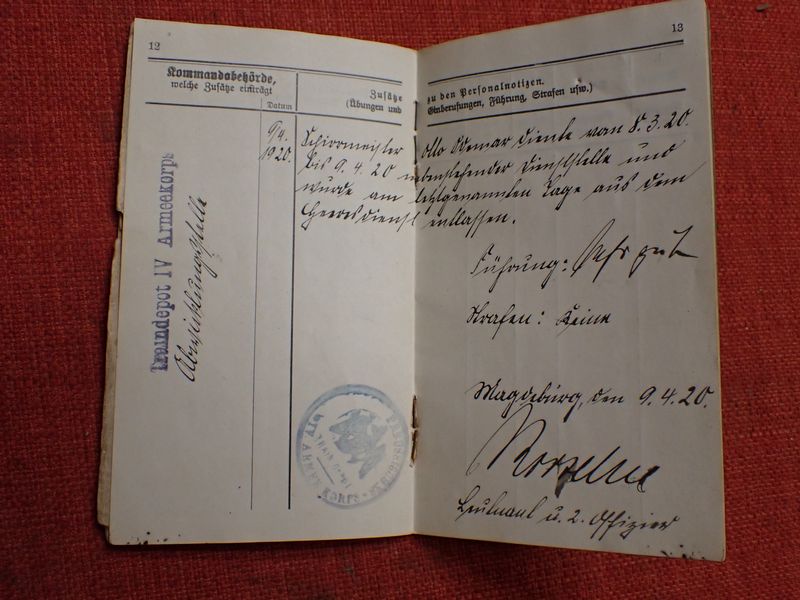 12
Kommandobehörde,
welche Zusätze einträgt
Datum
Zusätze
(Übungen und
Traindepot IV Armeekorps
Abwicklungsstelle
9/4.
1920.
13
zu den Personalnotizen.
Einberufungen, Führung, Strafen usw.)
Schirrmeister Otto diente vom 8.3.20.
bis 9.4.20 nebenstehender Dienststelle und
wurde am letztgenannten Tage aus dem
Heeresdienst entlassen.
Führung: Sehr gut
Strafen: Keine
Magdeburg, den 9.4.20.
Leutnant u. 2. Offizier
IV ARMEE KORPS